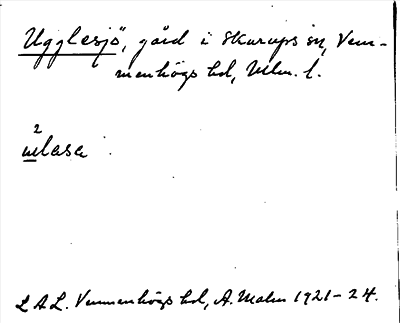 Ugglesjö, gård i Skurups sn, Vem-
menhögs hd, Mlm. l.
2
ulasa
LAL. Vemmenhögs hd, A. Malm 1921-24.